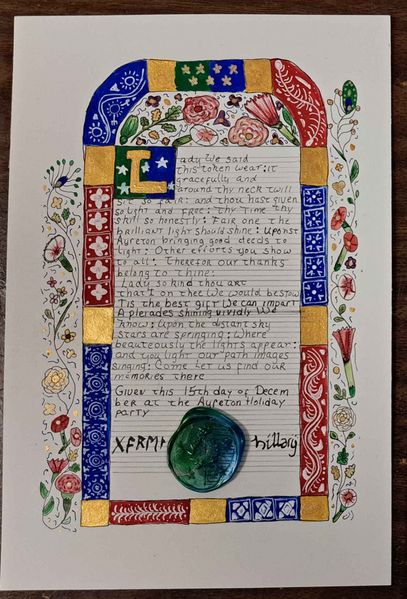 Lady We said
this token wear: it
gracefully and
around thy neck twill
sit so fair: and thou hast given
so light and free: thy Time thy
skill so honestly: Fair one the
brilliant light should shine: Upon
Ayreton bringing good deeds to
light: Other efforts you show
to all: Therefor our thanks
belong to thine:
Lady so kind thou art
that on thee We would bestow
Tis the best gift We can impart
A pleiades shining vividly We
know: Upon the distant sky
stars are springing: Where
beauteously the lights appear:
and you light our path images
singing: Come let us find our
memories there
Given this 15th day of Decem
ber at the Ayreton Holiday
party
hillary